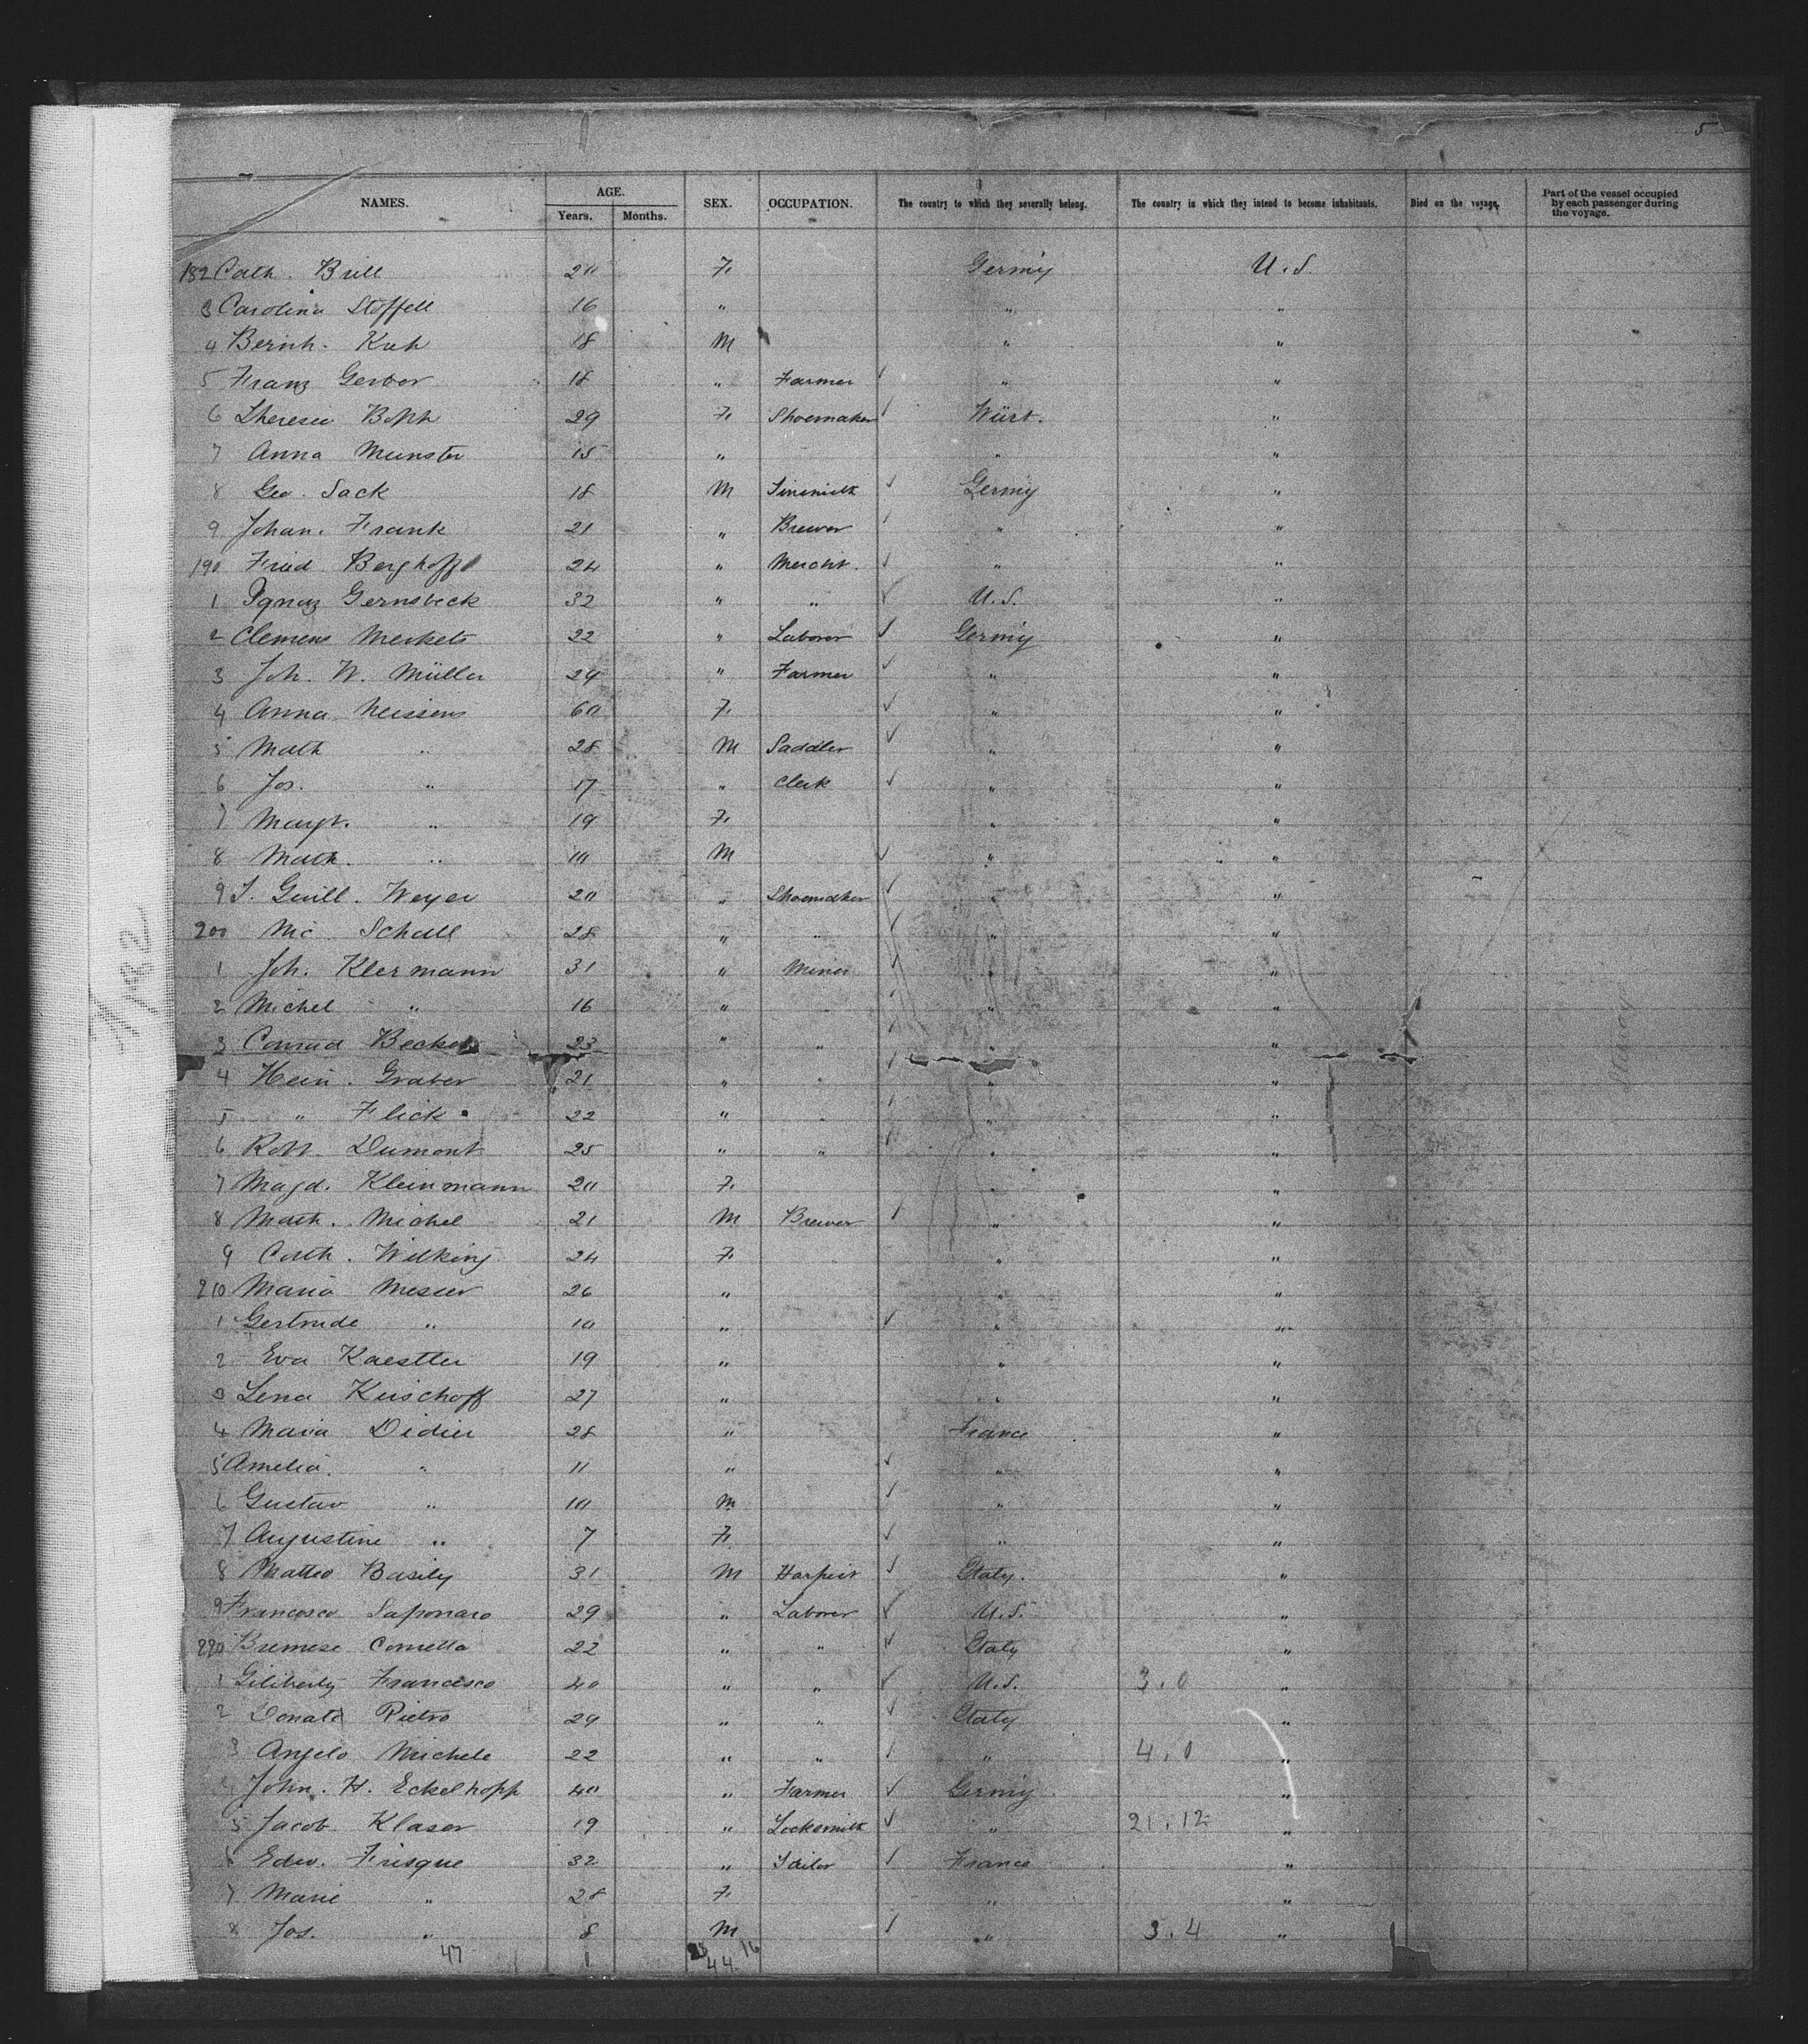 5
NAMES. AGE. Years. Months. SEX. OCCUPATION. The country to which they severally belong. The country in which they intend to become inhabitants. Died on the voyage. Part of the vessel occupied by each passenger during the voyage.
182 Cath. Brill 20 F. Germ'y U.S.
3 Carolina Stoffell 16 " " "
4 Bernh. Kuh 18 M " "
5 Franz Gerber 18 " Farmer " "
6 Theresa 29 F. Shoemaker Würt. "
7 Anna Munster 15 " " "
8 Geo. Sack 18 M Tinsmith Germ'y "
9 Johan. Frank 21 " Brewer " "
190 Fried Berghoff 24 " Mercht. " "
1 Ignaz Gernsbeck 32 " " U.S. "
2 Clemens Merkets 22 " Laborer Germ'y "
3 Joh. W. Müller 29 " Farmer " "
4 Anna Neissens 60 F. " "
5 Math " 28 M Saddler " "
6 Jos. " 17 " Clerk " "
7 Margt. " 19 F. " "
8 Math. " 10 M " "
9 J. Guill. Weyer 20 " Shoemaker " "
200 Nic. Schall 28 " " " "
1 Joh. Klermann 31 " Miner " "
2 Michel " 16 " " " "
3 Conrad Becker 23 " " " "
4 Hein. Graber 21 " " " "
5 " Flick 22 " " " "
6 Robt. Dumont 25 " " " "
7 Magd. Kleinmann 20 F. " "
8 Math. Michel 21 M Brewer " "
9 Cath. Wilking 24 F. " "
210 Maria Messer 26 " " "
1 Gertrude " 10 " " "
2 Eva Kaestler 19 " " "
3 Lena Kirschoff 27 " " "
4 Maria Didier 28 " France "
5 Amelia " 11 " " "
6 Gustav " 10 M " "
7 Augustine " 7 F. " "
8 Matteo Basily 31 M Harpist Italy. "
9 Francesco Saponaro 29 " Laborer U.S. "
220 Comella 22 " " Italy "
1 Giliberty Francesco 40 " " U.S. 3.0 "
2 Donato Pietro 29 " " Italy "
3 Angelo Michele 22 " " " 4.0 "
4 John. H. Eckelhopp 40 " Farmer Germ'y "
5 Jacob Klaser 19 " Locksmith " 21.12 "
6 Edw. Frisque 32 " Tailor France "
7 Marie " 28 F. " "
8 Jos. " 8 M " 3.4 "
47 1 44 16